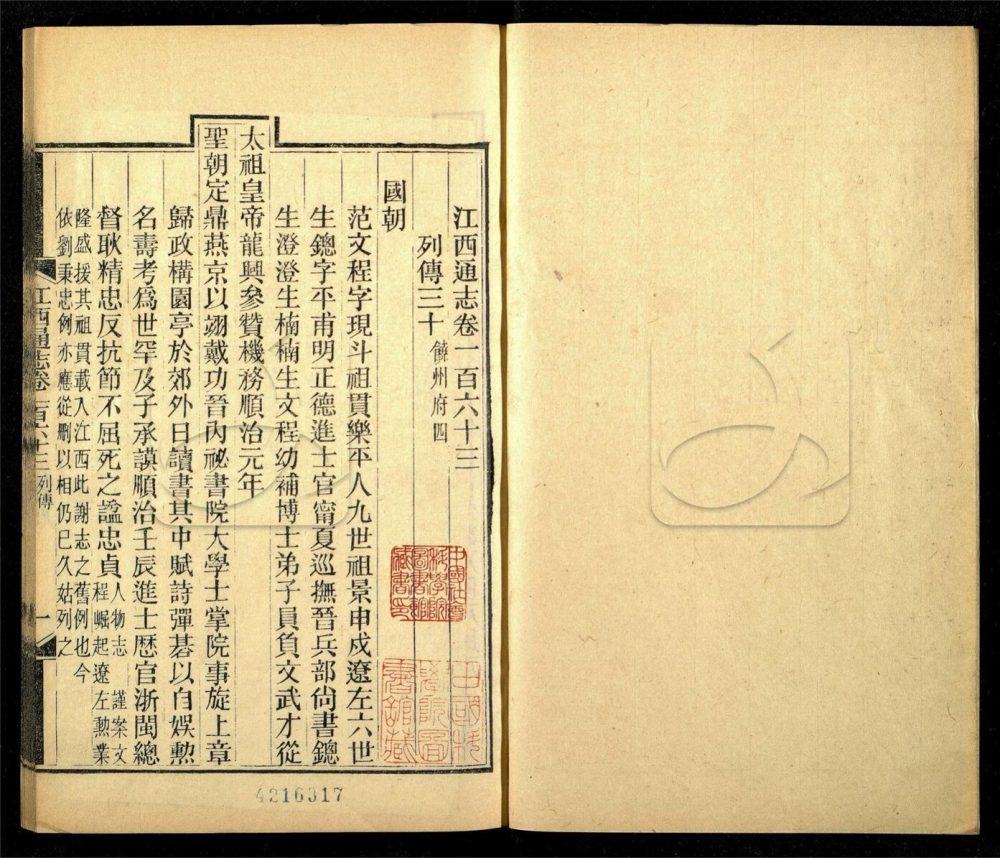 江西通志卷一百六十三
列傳三十 饒州府四
國朝
范文程字現斗祖貫樂平人九世祖景申戍遼左六世
生鏓字平甫明正德進士官甯夏巡撫晉兵部尚書鏓
生澄澄生楠楠生文程幼補博士弟子員負文武才從
太祖皇帝龍興參贊機務順治元年
聖朝定鼎燕京以翊戴功晉內祕書院大學士掌院事旋上章
歸政構園亭於郊外日讀書其中賦詩彈碁以自娛勲
名壽考爲世罕及子承謨順治壬辰進士歴官浙閩總
督耿精忠反抗節不屈死之諡忠貞 人物志 謹案文
程崛起遼左勲業
隆盛援其祖貫載入江西此謝志之舊例也今
依劉秉忠例亦應從刪以相仍已久姑列之
江西通志卷一百六十三 列傳
一
中國社會
科學院
圖書館
藏書印
中國科
學院圖
書館藏
4216317